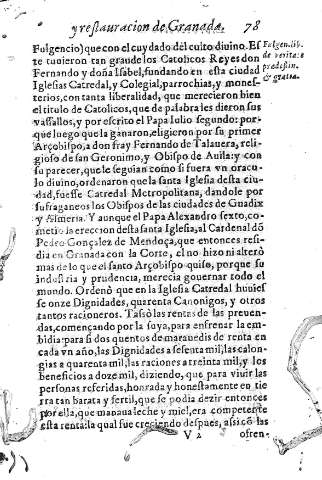 y restauracion de Granada. 78
Fulgencio) que con el cuydado del culto diuino. Es
te tuuieron tan grande los Catolicos Reyes don
Fernando y doña Isabel, fundando en esta ciudad
Iglesias Catredal, y Colegial, parrochias, y mones-
terios, con tanta liberalidad, que merecieron bien
el titulo de Catolicos, que de palabra les dieron sus
vassallos, y por escrito el Papa Iulio segundo: por-
que luego que la ganaron, eligieron por su primer
Arçobispo, a don fray Fernando de Talauera, reli-
gioso de san Geronimo, y Obispo de Auila: y con
su parecer, que le seguian como si fuera vn oracu-
lo diuino, ordenaron que la santa Iglesia desta ciu-
dad, fuesse Catredal Metropolitana, dandole por
sufraganeos los Obispos de las ciudades de Guadix
y Almeria. Y aunque el Papa Alexandro sexto, co-
metio la ereccion desta santa Iglesia, al Cardenal dõ
Pedro Gonçalez de Mendoça, que entonces resi-
dia en Granada con la Corte, el no hizo ni alterò
mas de lo que el santo Arçobispo quiso, porque su
industria y prudencia, merecia gouernar todo el
mundo. Ordenò que en la Iglesia Catredal huuies
se onze Dignidades, quarenta Canonigos, y otros
tantos racioneros. Tassò las rentas de las preuen-
das, començando por la suya, para enfrenar la em
bidia: para si dos quentos de marauedis de renta en
cada vn año, las Dignidades a sesenta mil, las calon-
gias a quarenta mil, las raciones a treinta mil, y los
beneficios a doze mil, diziendo, que para viuir las
personas referidas, honrada y honestamente en tie
rra tan barata y fertil, que se podia dezir entonces
por ella, que manaua leche y miel, era competente
esta renta: la qual fue creciendo despues, assi cõ las
V 2 ofren-
Fulgen. lib.
de verita:e
predestin.
& gratia.